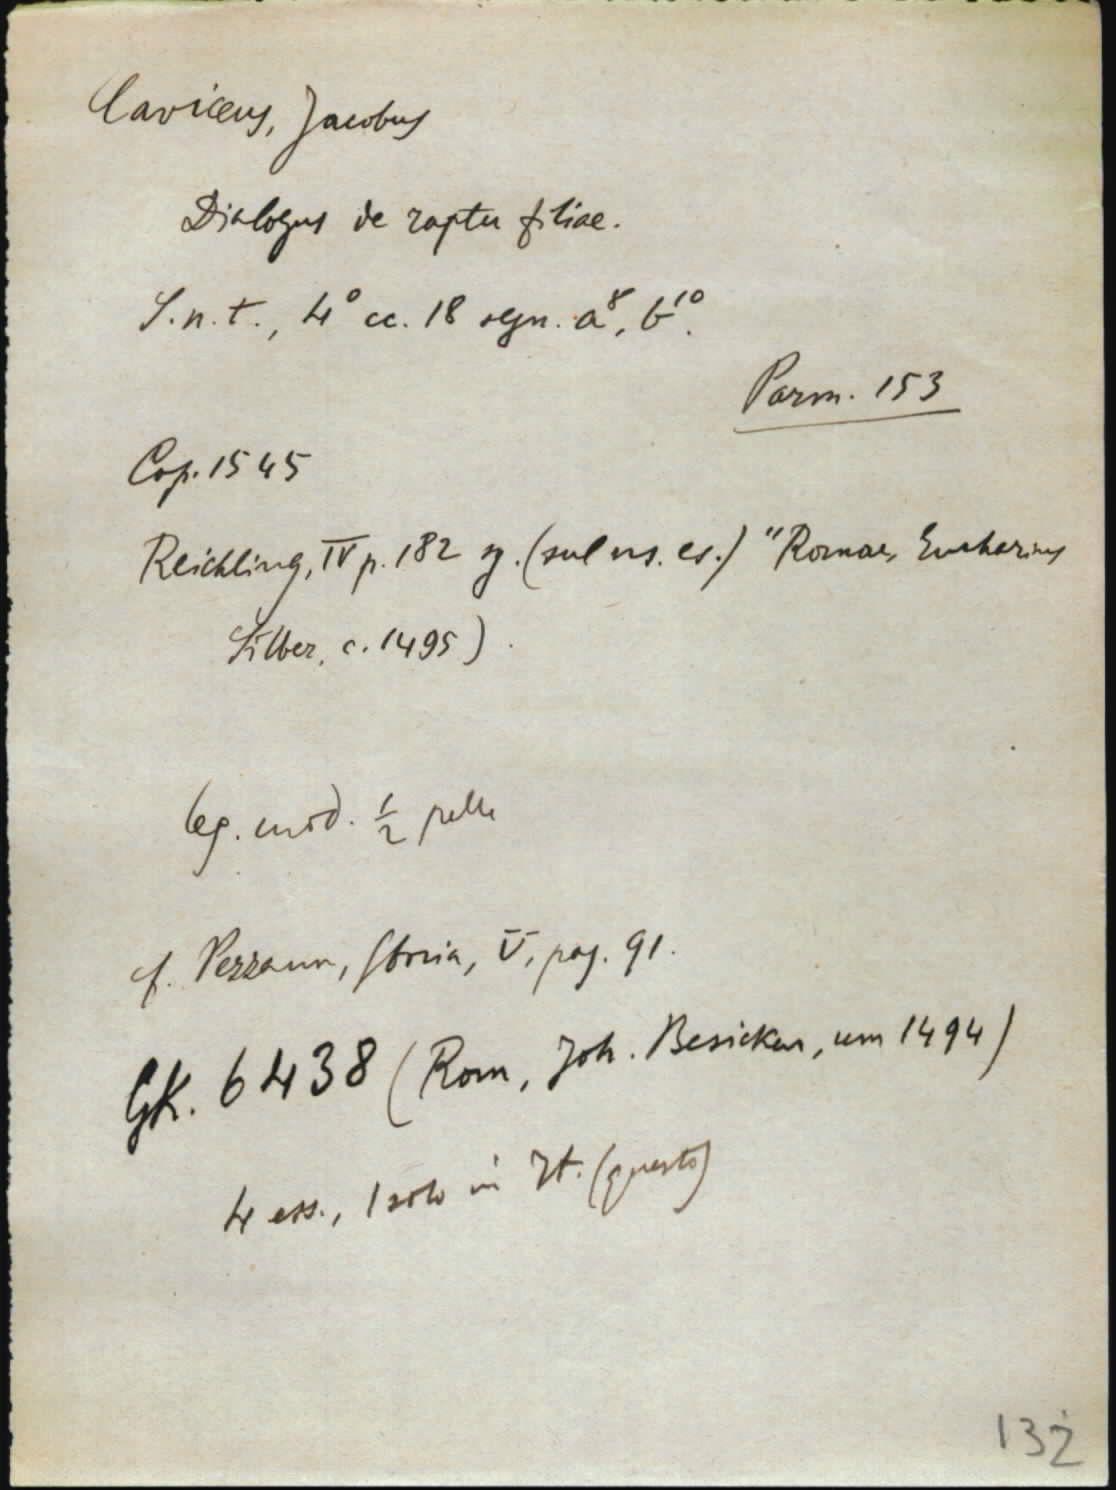 Caviceus, Jacobus
Dialogus de raptu filiae.
S.n.t., 4° cc. 18 segn. a⁸, b¹⁰.
Parm. 153
Cop. 1545
Reichling, IV p. 182 sg. (sul ns. es.) "Romae, Eucharius
Silber, c. 1495).
leg. mod. ½ pelle
cf. Pezzana, Storia, V, pag. 91.
GK. 6438 (Rom, Joh. Besicken, um 1494)
4 ess., 1 solo in It. (questo)
132